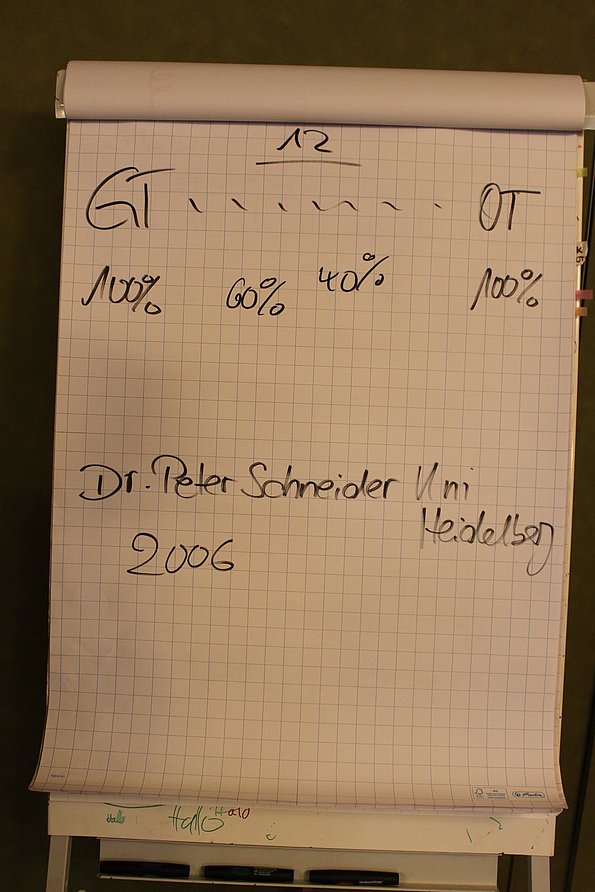 12
GT OT
100% 60% 40% 100%
Dr. Peter Schneider Uni
Heidelberg
2006
Hallo Hallo Halo